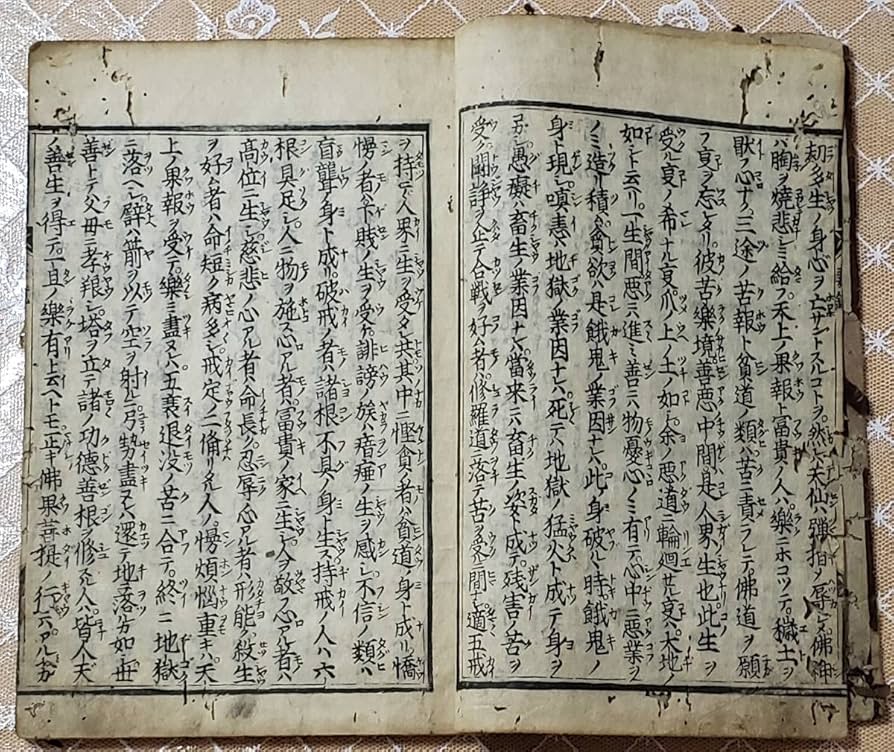 劫多生ノ身心ヲ亡サントスルコトヲ。然レハ天仙ハ弾指ヲ辱シメ。佛神
ハ胸ヲ焼悲シミ給フ。天上ノ果報ト冨貴ノ人ハ。樂ニホコツテ。穢土ヲ
猒心ナク。三途ノ苦報ト貧道ノ類ハ。苦ニ責ラレテ佛道ヲ願
フ夏ヲ忘レタリ。彼苦樂境善惡中間ハ。是人界ノ生也。此生ヲ
受ル夏ノ希ナル夏。爪ノ上ノ土ノ如ク。余ノ悪道ニ輪廻セル夏ハ。大地ノ
如シト云ヘリ。一生間悪ニ進ミ善ニハ物憂心ノミ有テ。心中ニ悪業ヲ
ノミ造リ積ム。貪欲ハ是餓鬼ノ業因ナレハ。此ノ身破ルヽ時餓鬼ノ
身ト現シ。嗔恚ハ地獄ノ業因ナレハ。死テハ地獄ノ猛火ト成テ身ヲ
焦シ。愚癡ハ畜生ノ業因ナレハ。當来ニハ畜生ノ姿ト成テ。残害ノ苦ヲ
受ク。闘諍ヲ企テ合戦ヲ好ム者ハ。修羅道ニ落テ苦ヲ受ル間ナシ。適五戒
ヲ持テ。人界ニ生ヲ受タレ共。其中ニ慳貪ノ者ハ貧道ノ身ト成リ。憍
慢ノ者ハ下賎ノ生ヲ受ケ。誹謗ノ族ハ瘖瘂ノ生ヲ感シ。不信ノ類ハ
盲聾ノ身ト成リ。破戒ノ者ハ諸根不具ノ身ト生ス。持戒ノ人ハ六
根具足シ。人ニ物ヲ施ス心アル者ハ冨貴ノ家ニ生レ。人ヲ敬フ心アル者ハ
高位ニ生シ。慈悲ノ心アル者ハ命長ク。忍辱ノ心アル者ハ形能ク。殺生
ヲ好ム者ハ命短ク病多シ。戒定ノ二備リタル人ハ。慢煩悩重キハ。天
上ノ果報ヲ受テ。樂ミ盡ヌレハ五衰退没ノ苦ニ合テ。終ニハ地獄
ニ落ヘシ。譬ハ箭ヲ以テ空ヲ射ルニ。弓勢盡ヌレハ還テ地ニ落カ如シ。世
善トテ父母ニ孝養シ。塔ヲ立テ諸ノ功徳善根ヲ修スル人ハ。皆人天
ノ善生ヲ得テ。一旦ノ樂有ト云ヘトモ。正キ佛果菩提ノ行ニハアルヘカ